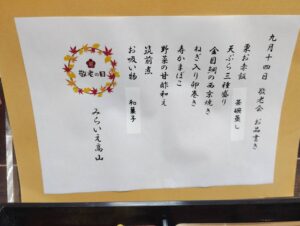 九月十四日 敬老会 お品書き
栗お赤飯
茶碗蒸し
天ぷら三種盛り
金目鯛の西京焼き
ねぎ入り卵巻き
寿かまぼこ
野菜の甘酢和え
筑前煮
和菓子
お吸い物
敬老の日
みらいえ高山